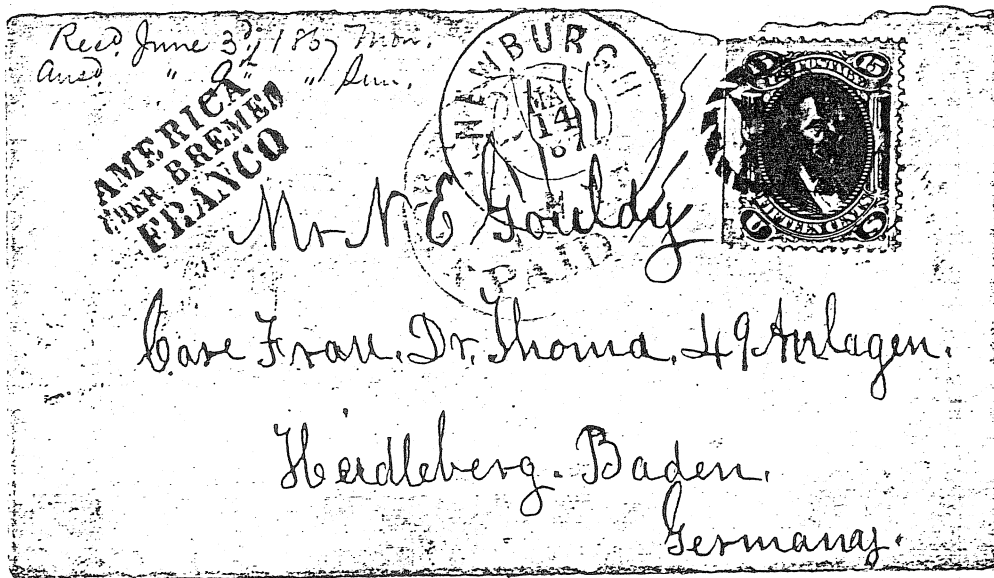 Recd. June 3d, 1867 Mon.
Ansd. " 9th " Sun.
AMERICA
ÜBER BREMEN
FRANCO
NEWBURGH
14
PAID
15 U.S. POSTAGE 15
FIFTEEN CENTS
U S
Mr N E Gouldy
Care Frau. Dr. Thoma. 49 Anlagen.
Heidleberg. Baden.
Germany.